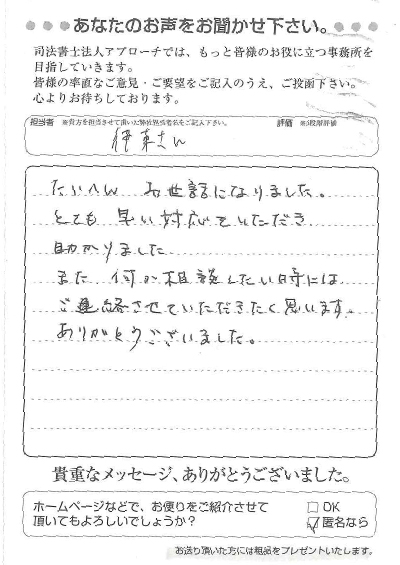 あなたのお声をお聞かせ下さい。
司法書士法人アプローチでは、もっと皆様のお役に立つ事務所を
目指していきます。
皆様の率直なご意見・ご要望をご記入のうえ、ご投函下さい。
心よりお待ちしております。
担当者 ※貴方を担当させて頂いた弊社担当者名をご記入下さい。 評価 ※5段階評価
伊東さん
たいへん お世話になりました。
とても 早い対応していただき
助かりました
また 何か相談したい時には
ご連絡させていただきたく思います。
ありがとうございました。
貴重なメッセージ、ありがとうございました。
ホームページなどで、お便りをご紹介させて
頂いてもよろしいでしょうか?
□ OK
☑ 匿名なら
お送り頂いた方には粗品をプレゼントいたします。